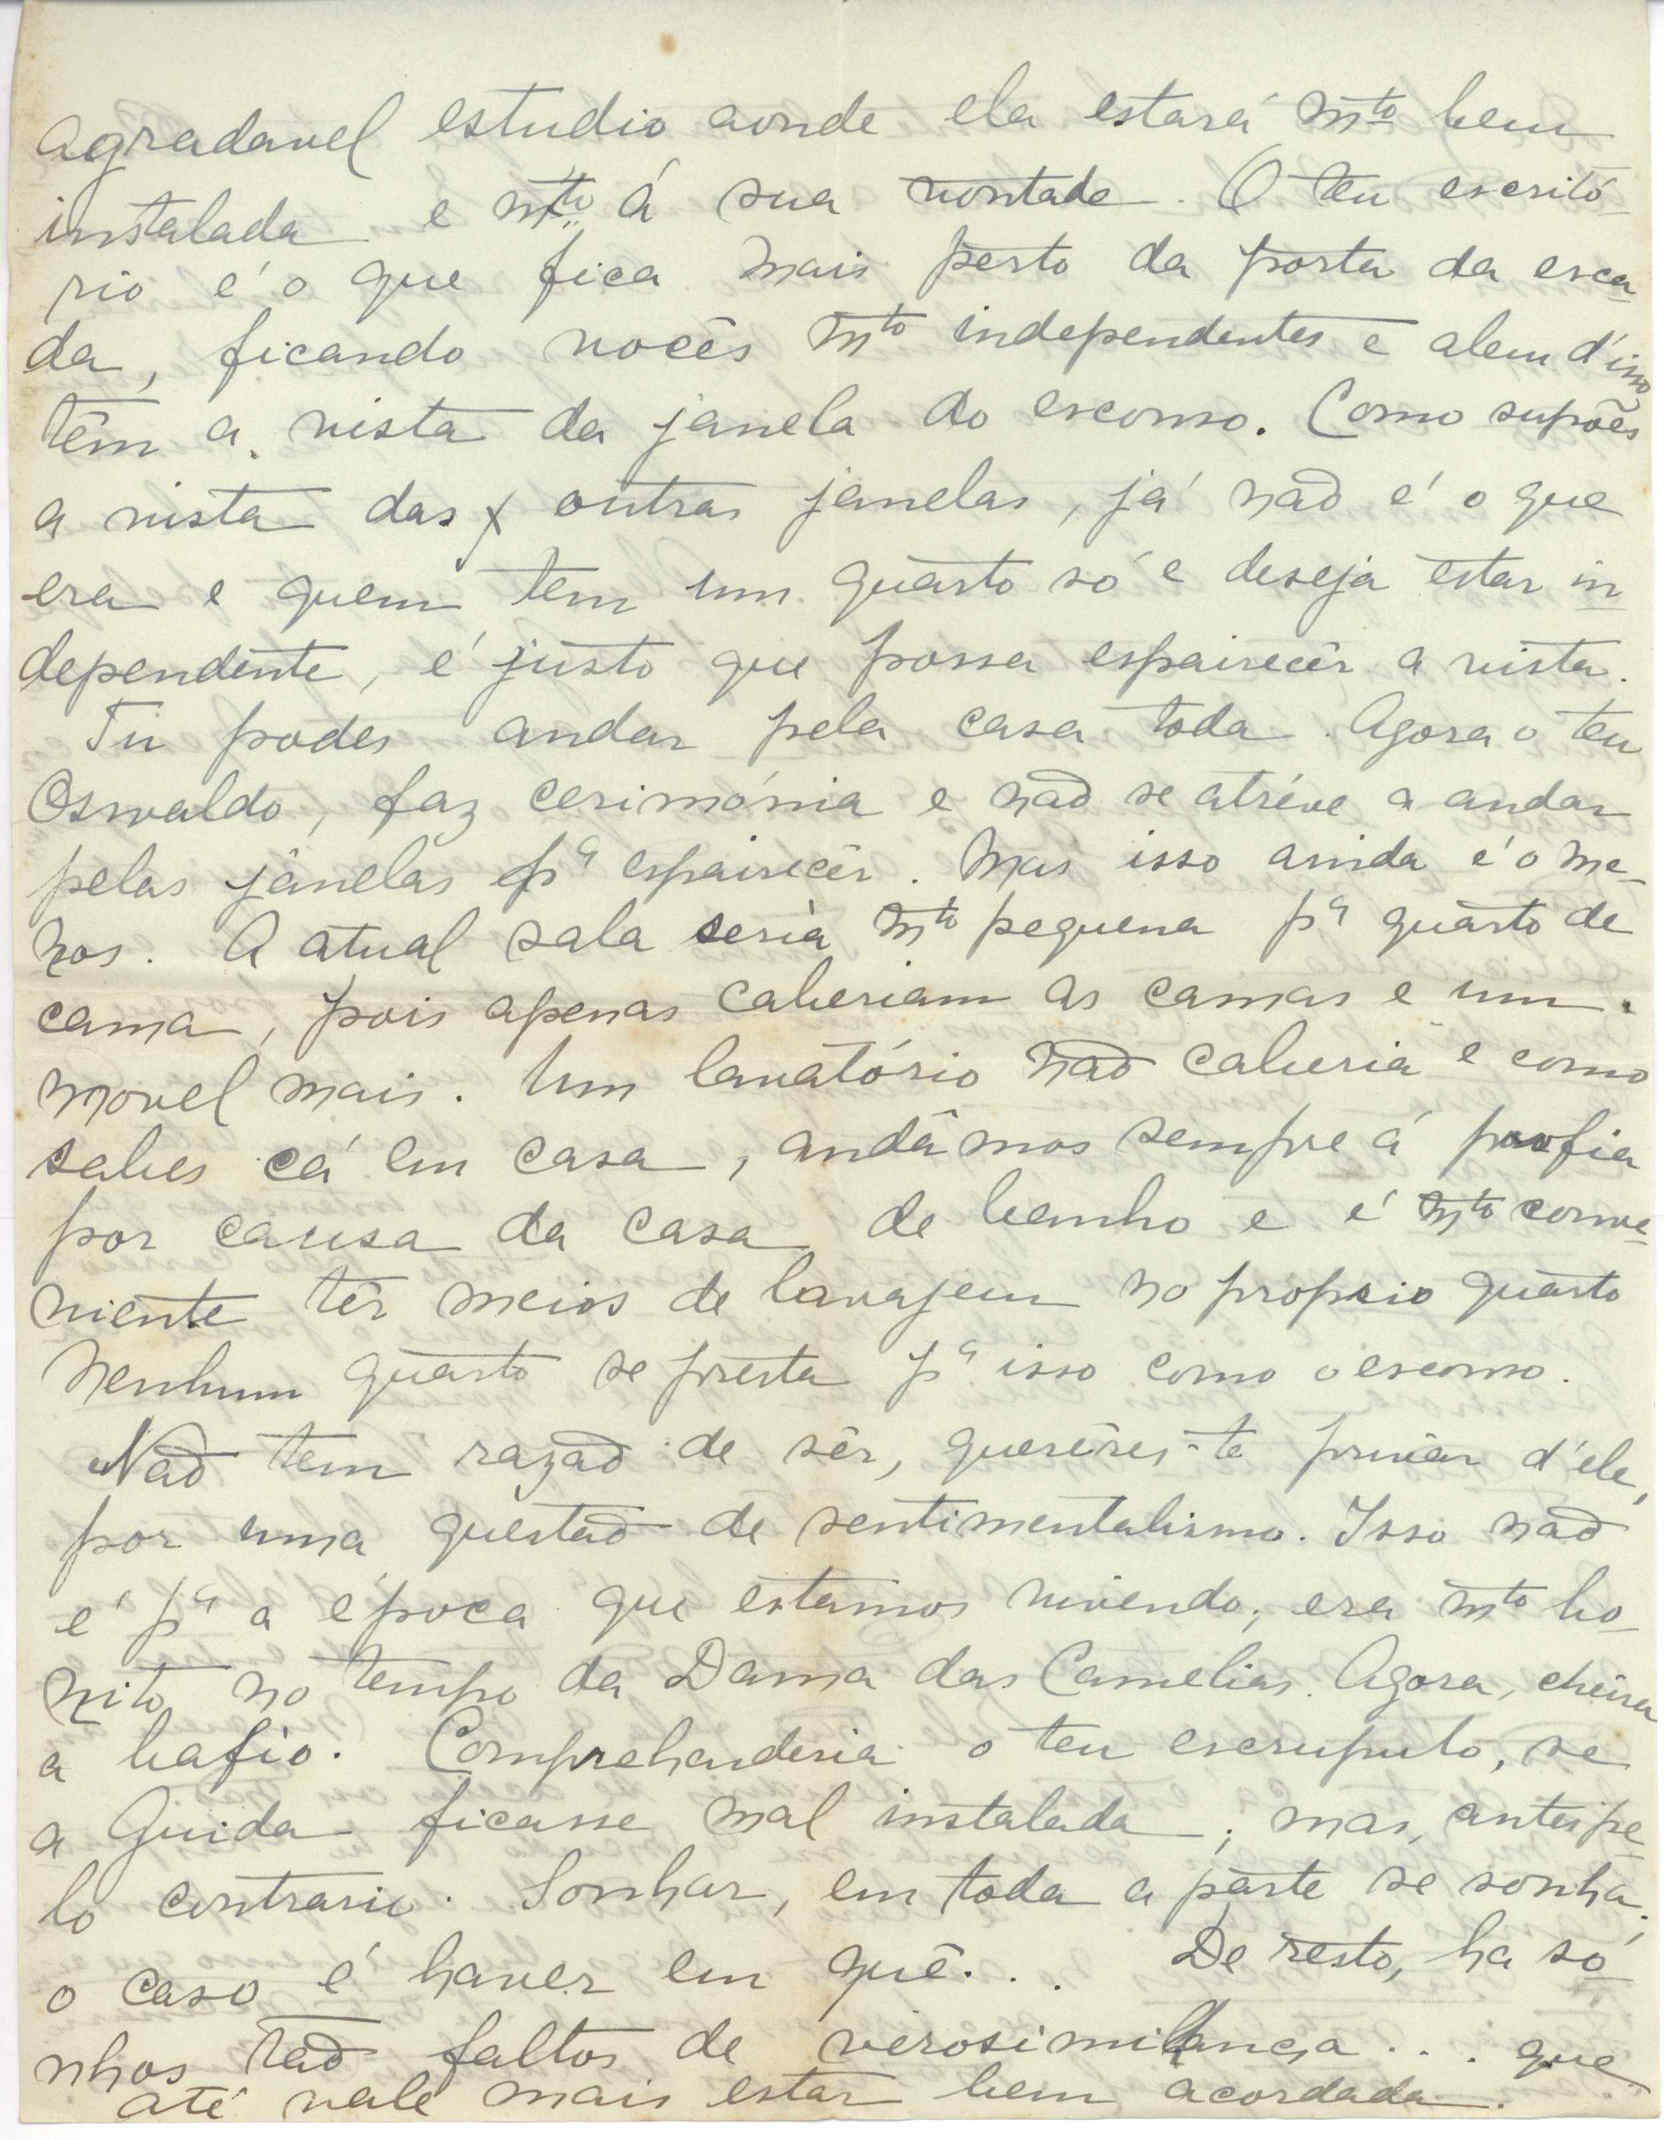 agradavel estudio aonde ela estará mto bem
instalada e mto á sua vontade. O teu escritó-
rio é o que fica mais perto da porta da esca-
da, ficando vocês mto independentes e alem d'isso
têm a vista da janela do escorno. Como supões
a vista das outras janelas, já não é o que
era e quem tem um quarto só e deseja estar in-
dependente, é justo que possa espairecêr a vista.
Tu podes andar pela casa toda. Agora o teu
Osvaldo, faz cerimónia e não se atréve a andar
pelas janelas pa espairecêr. Mas isso ainda é o me-
nos. A atual sala seria mto pequena pa quarto de
cama, pois apenas caberiam as camas e um
movel mais. Um lavatório não caberia e como
sabes cá em casa, andâmos sempre á porfia
por causa da casa de banho e é mto conve-
niente têr meios de lavajem no proprio quarto
Nenhum quarto se presta pa isso como o escorno.
Não tem razão de sêr, querêres-te privar d'ele,
por uma questão de sentimentalismo. Isso não
é pa a época que estamos vivendo; era mto bo-
nito no tempo da Dama das Camelias. Agora, cheira
a bafio. Comprehenderia o teu escrupulo, se
a Guida ficasse mal instalada; mas, antes pe-
lo contrario. Sonhar, em toda a parte se sonha.
o caso é haver em quê... De resto, ha só
nhos tão faltos de verosimilança... que
até vale mais estar bem acordada.